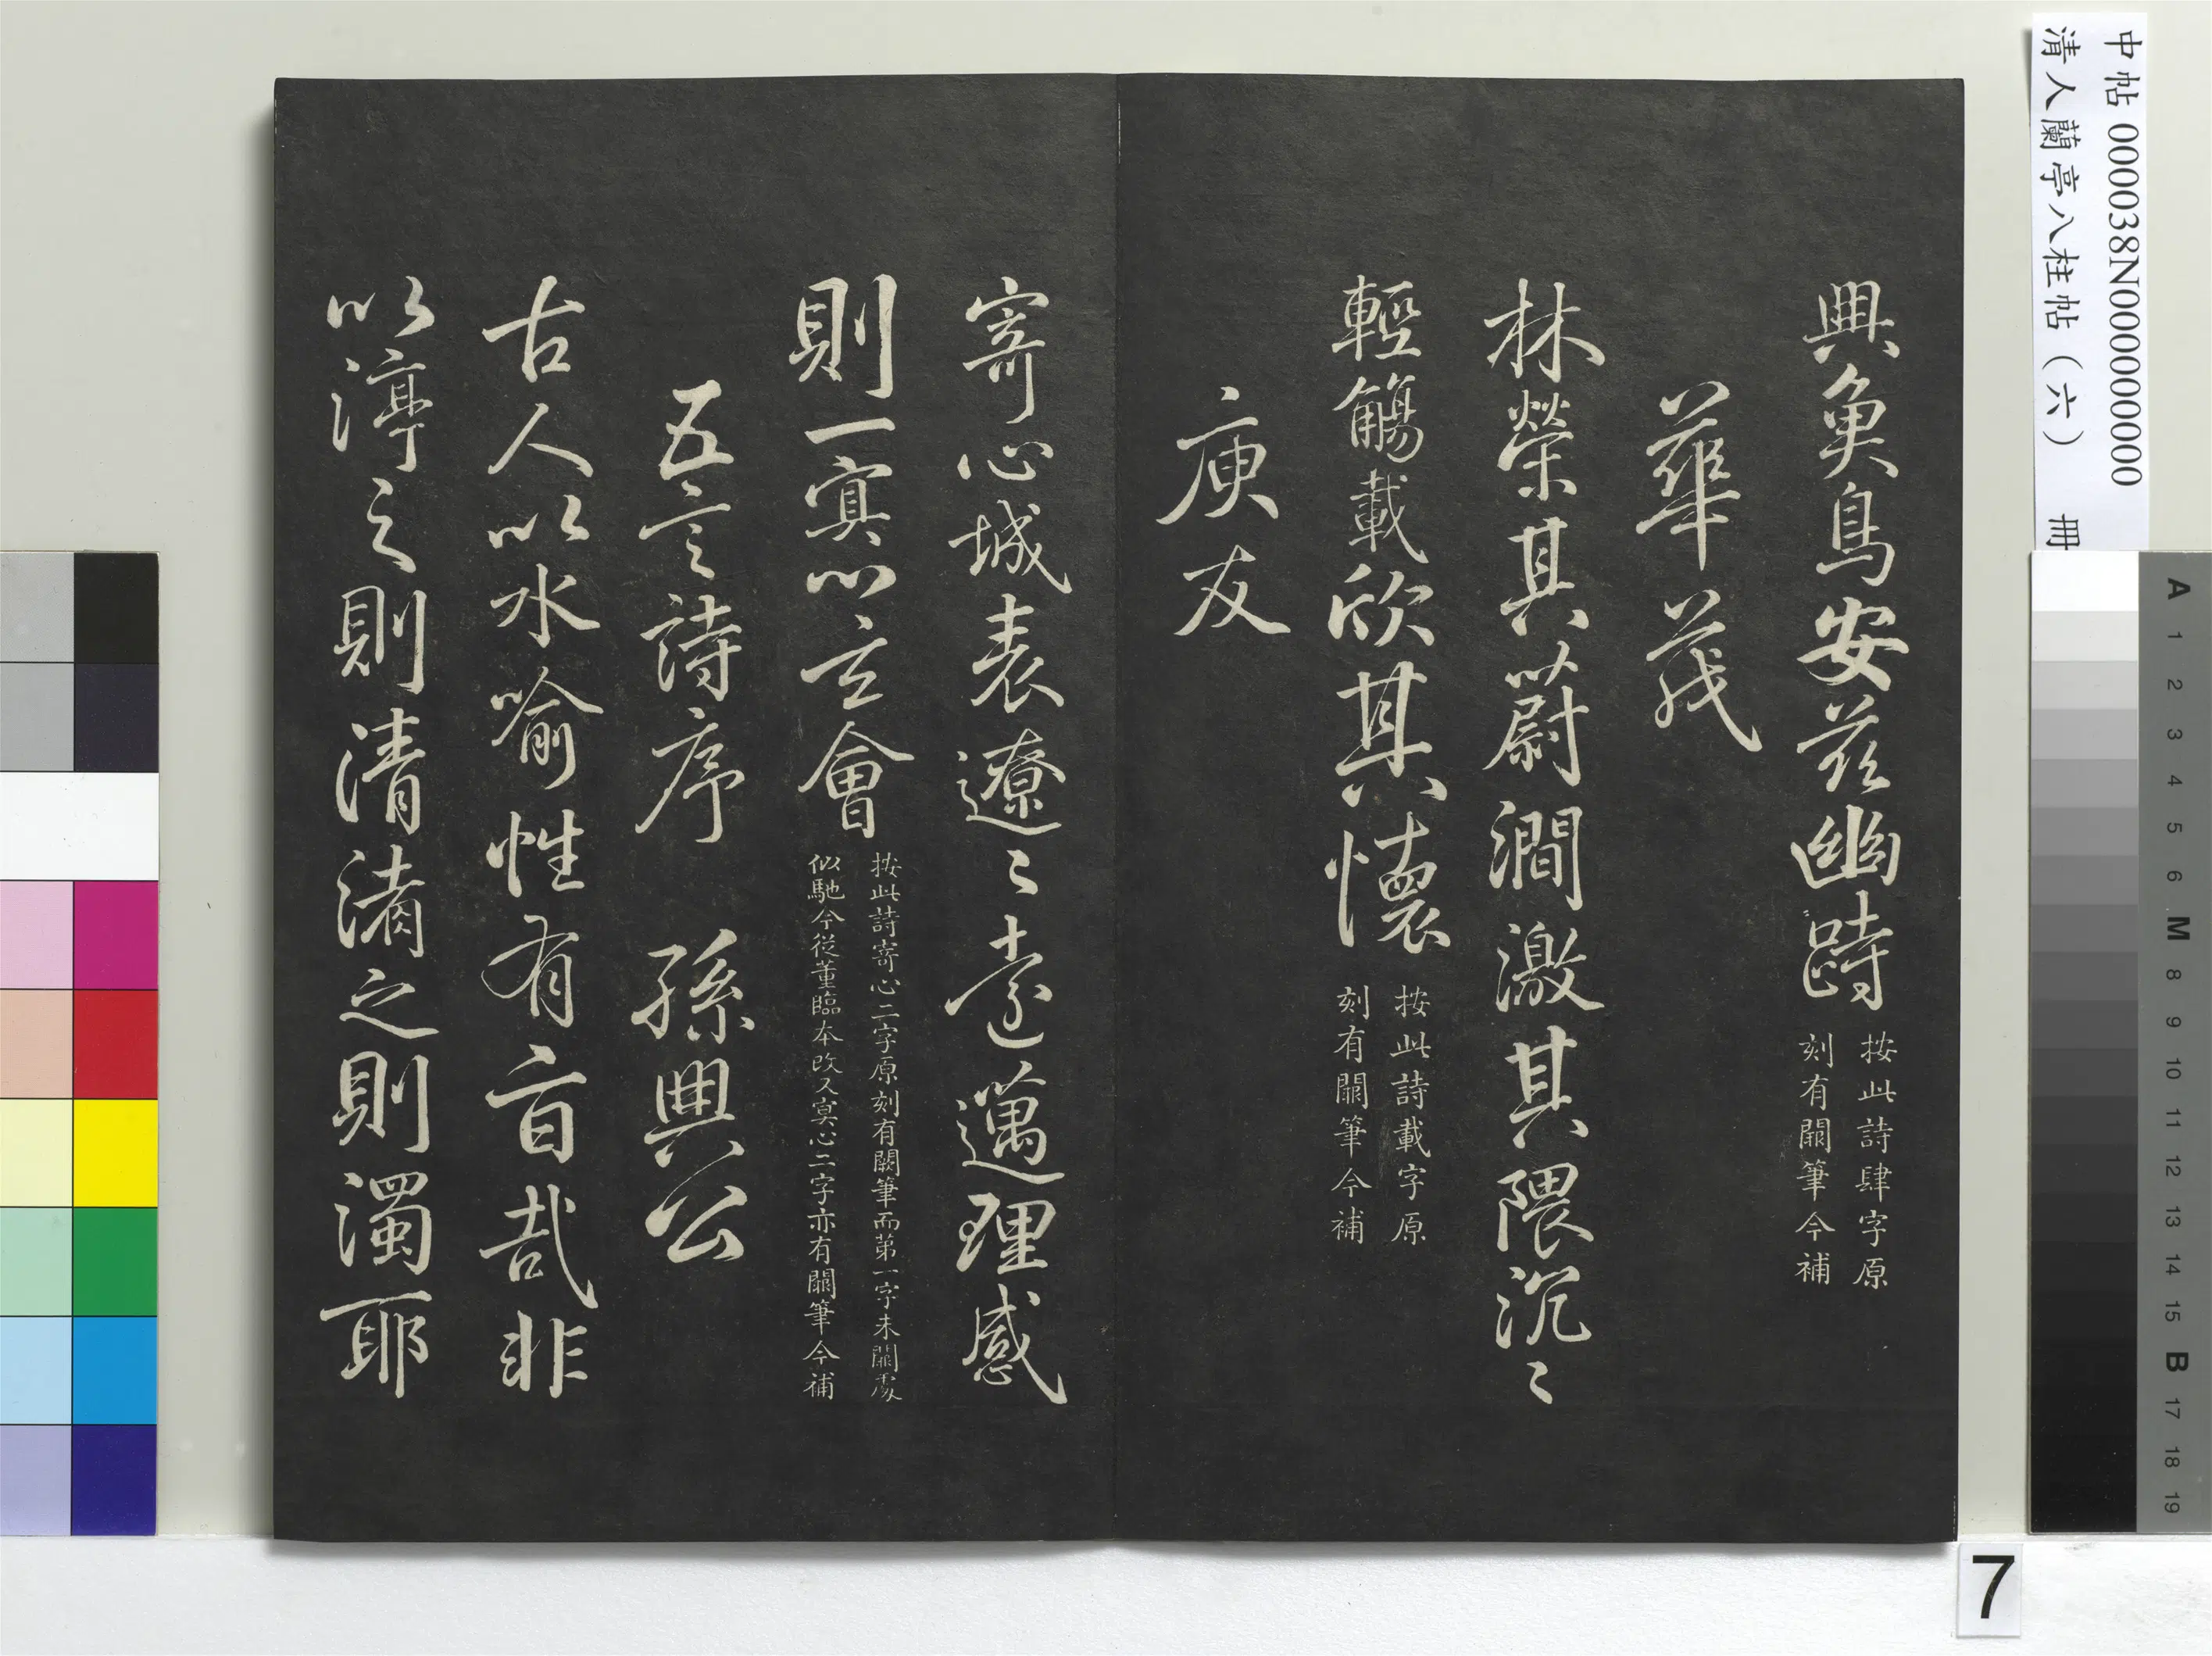 興魚鳥安茲幽跱
按此詩肆字原
刻有闕筆今補
華茂
林榮其蔚澗激其隈沉〻
輕觴載欣其懷
按此詩載字原
刻有闕筆今補
庾友
寄心域表遼〻遠邁理感
則一寞心玄會
按此詩寄心二字原刻有闕筆而第一字未闕處
似馳今從董臨本改又寞心二字亦有闕筆今補
五言詩序 孫興公
古人以水喻性有旨哉非
以渟之則清淆之則濁耶
中帖 000038N000000000
清人蘭亭八柱帖(六) 冊
A 1 2 3 4 5 6 M 8 9 10 11 12 13 14 15 B 17 18 19
7